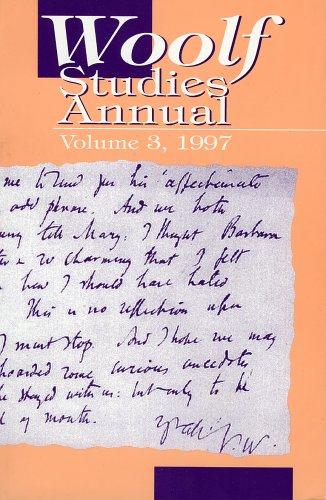 Woolf
Studies
Annual
Volume 3, 1997
me to find for his "affectionate
odd phrase. And we both
tell Mary: I thought Barbara
so charming that I felt
how I should have hated
This is no reflection upon
I must stop. And I hope we may
some curious anecdotes
stayed with us: but only to be
of month.
V.W.